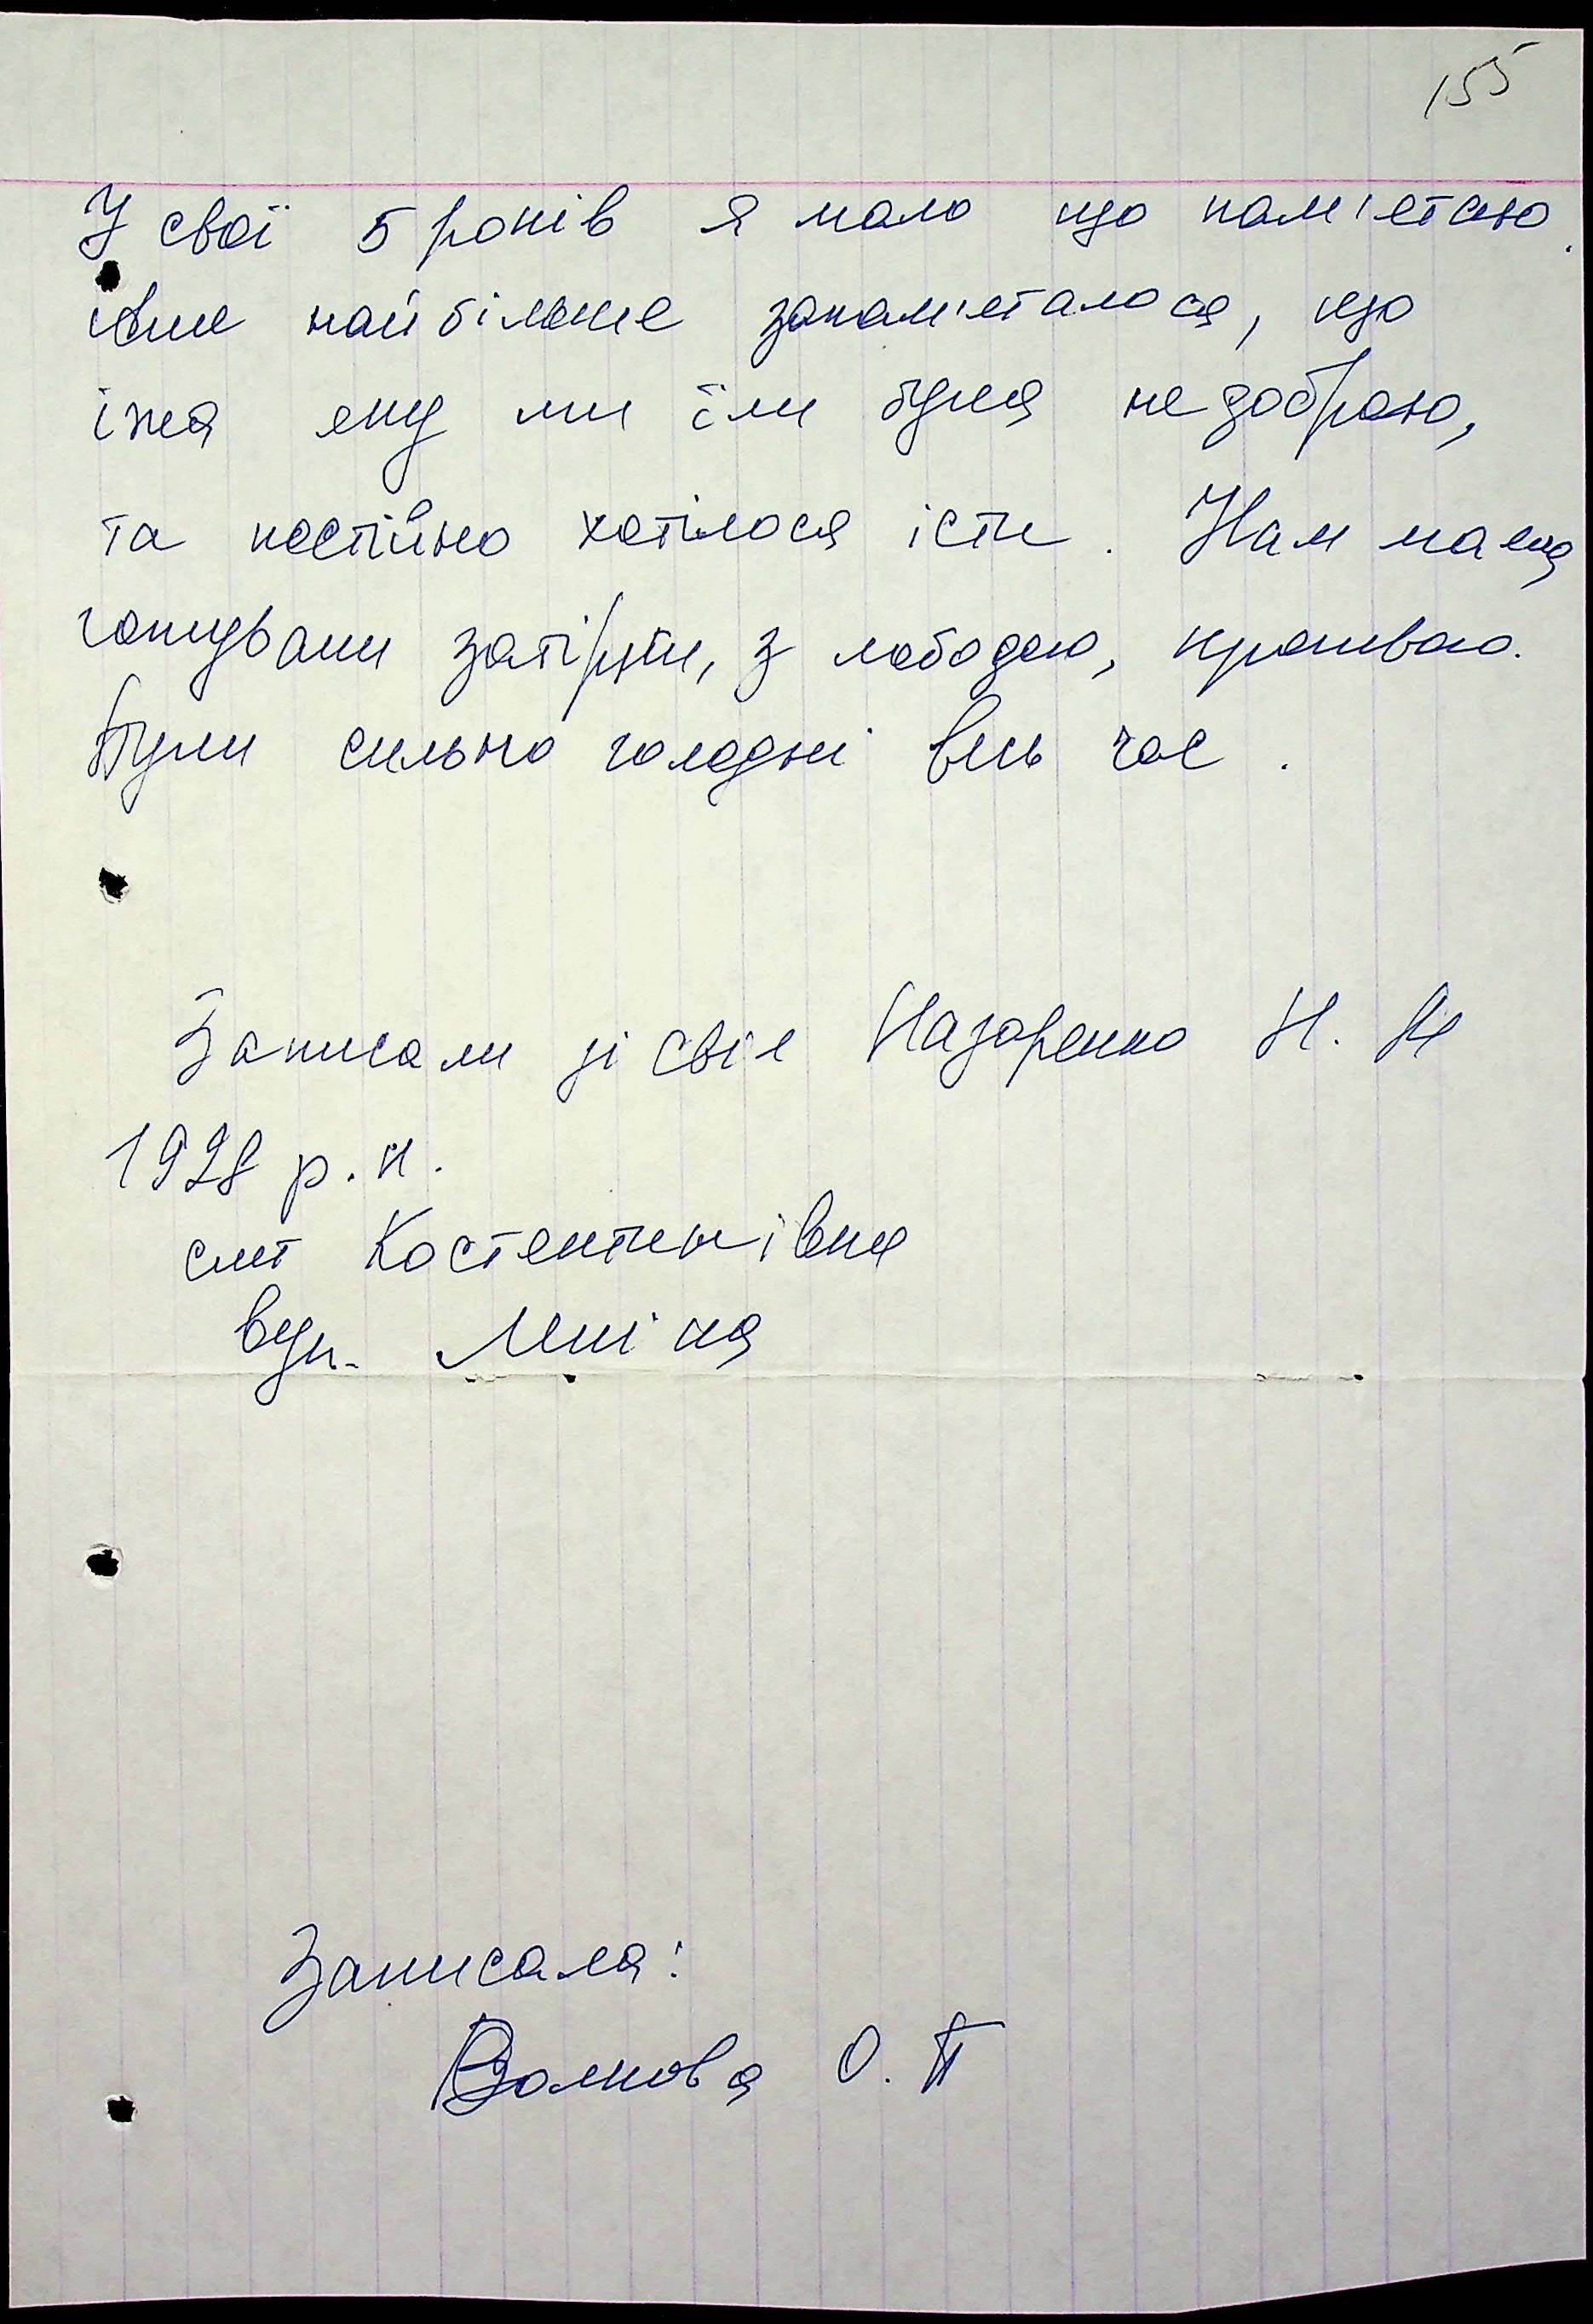 155
У свої 5 років я мало що пам'ятаю.
Але найбільше запам'яталося, що
їжа яку ми їли була не доброю,
та постійно хотілося їсти. Нам мама
готували затірки, з лободою, кропивою.
Були сильно голодні весь час.
Записали зі слів Назаренко Н. Я
1928 р. н.
смт Костянтинівка
вул. Леніна
Записала:
Волкова О. П